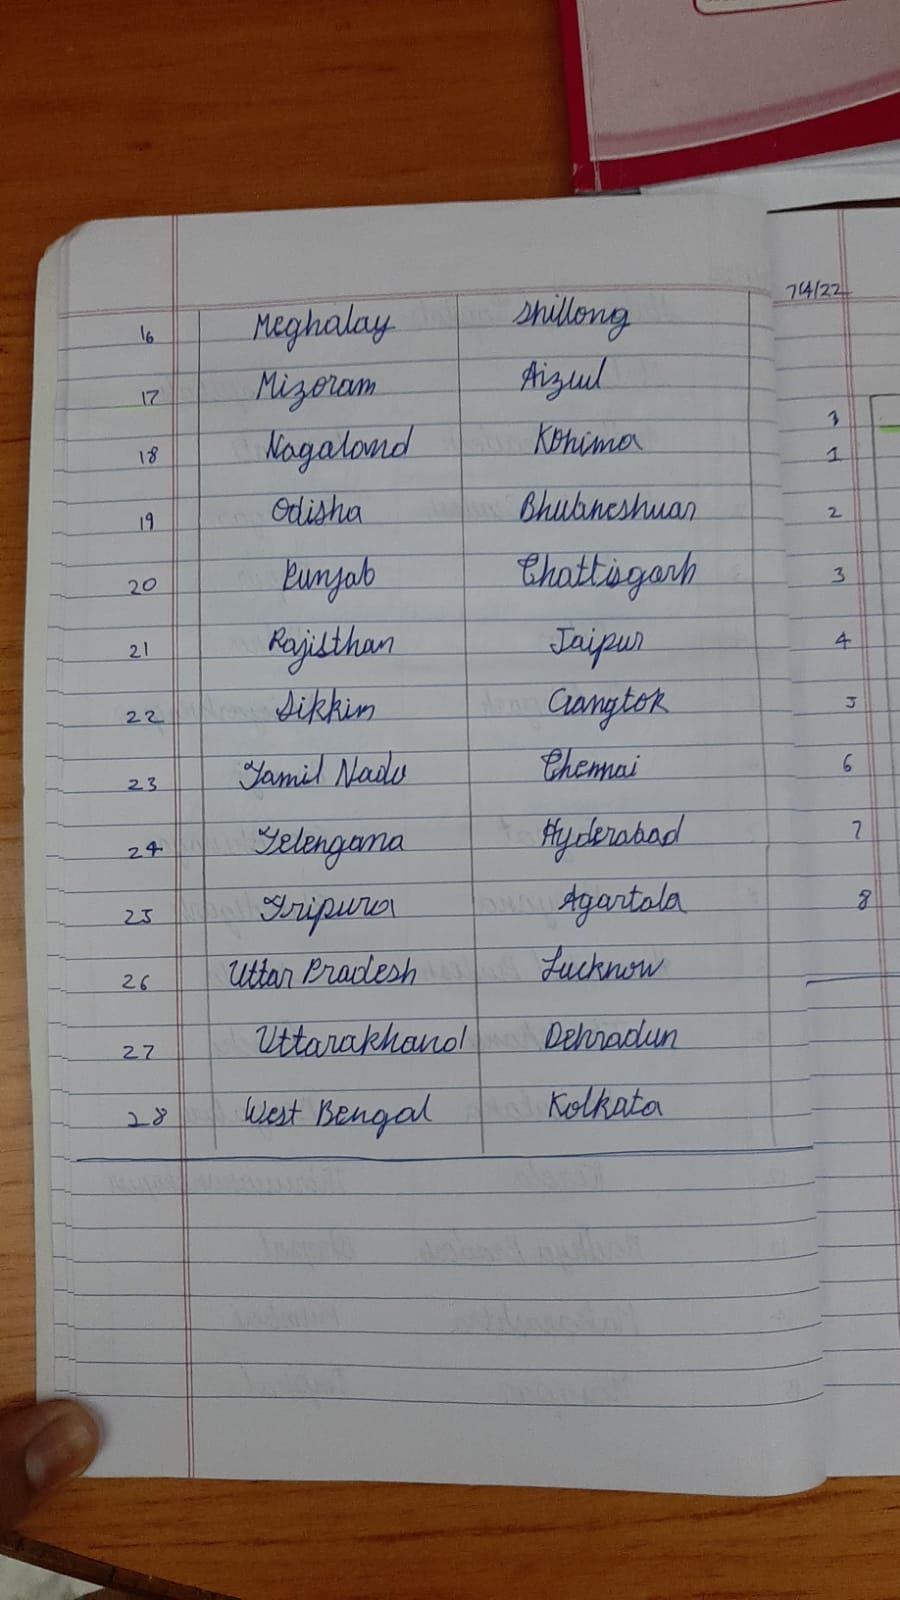 7/4/22
16 Meghalay Shillong
17 Mizoram Aizwl
18 Nagaland Kohima
19 Odisha Bhubneshwar
20 Punjab Chattisgarh
21 Rajisthan Jaipur
22 Sikkim Gangtok
23 Tamil Nadu Chennai
24 Telengana Hyderabad
25 Tripura Agartala
26 Uttar Pradesh Lucknow
27 Uttarakhand Dehradun
28 West Bengal Kolkata
3
1
2
3
4
5
6
7
8